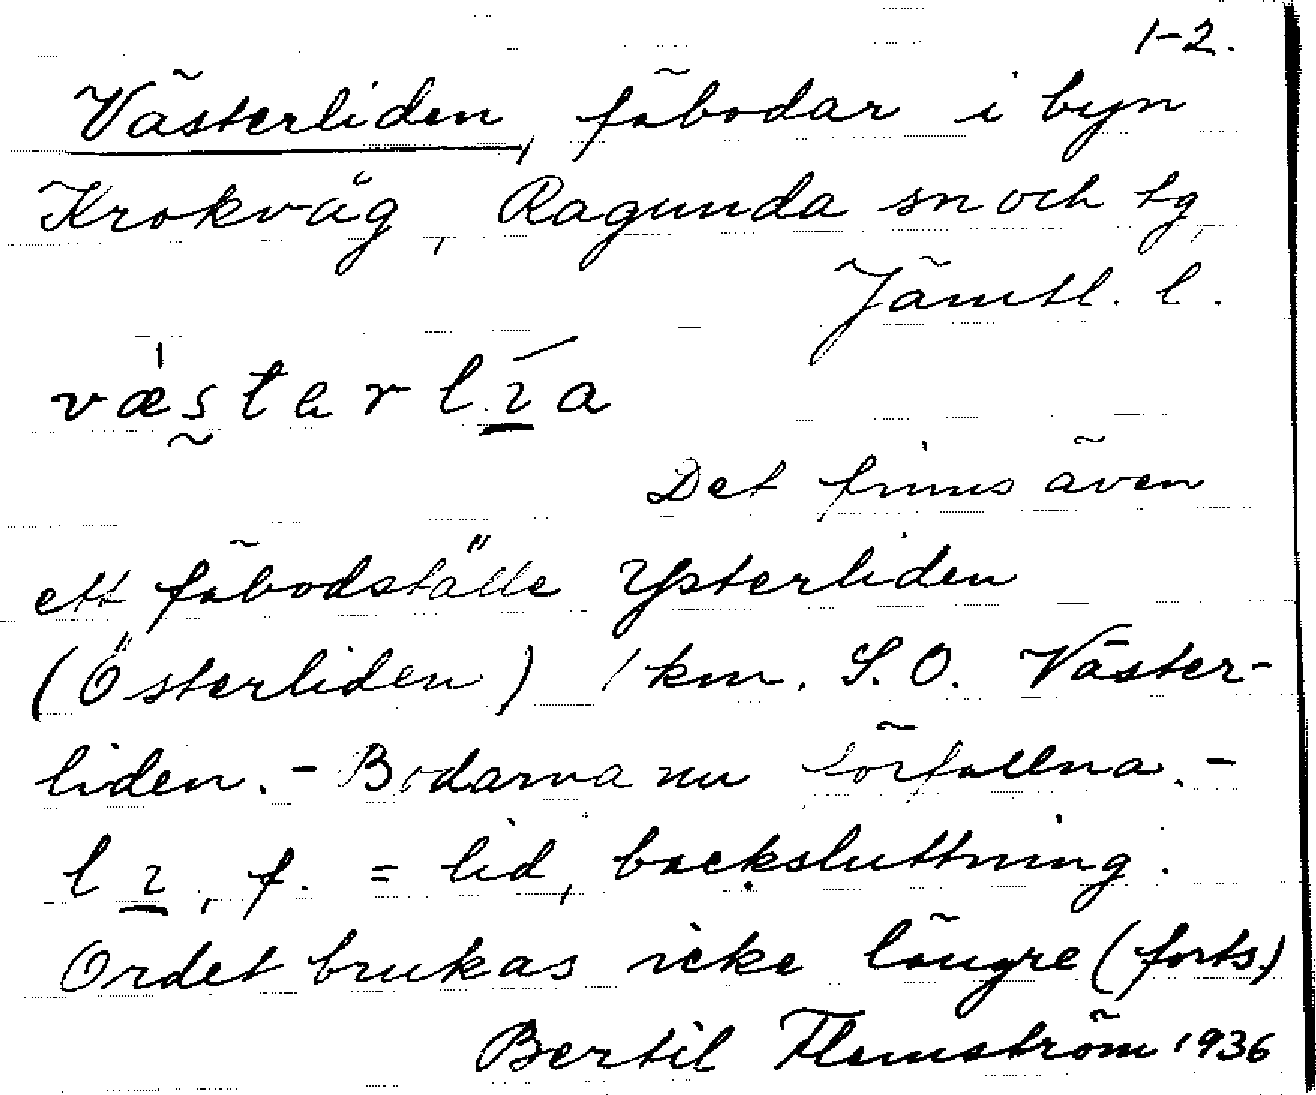 1-2.
Västerliden, fäbodar i byn
Krokvåg, Ragunda sn och tg,
Jämtl. l.
væstarlıa
Det finns även
ett fäbodställe Ysterliden
(Österliden) 1 km. S.O. Väster-
liden. - Bodarna nu förfallna. -
lı, f. = lid, backsluttning.
Ordet brukas icke längre (forts.)
Bertil Flemström 1936